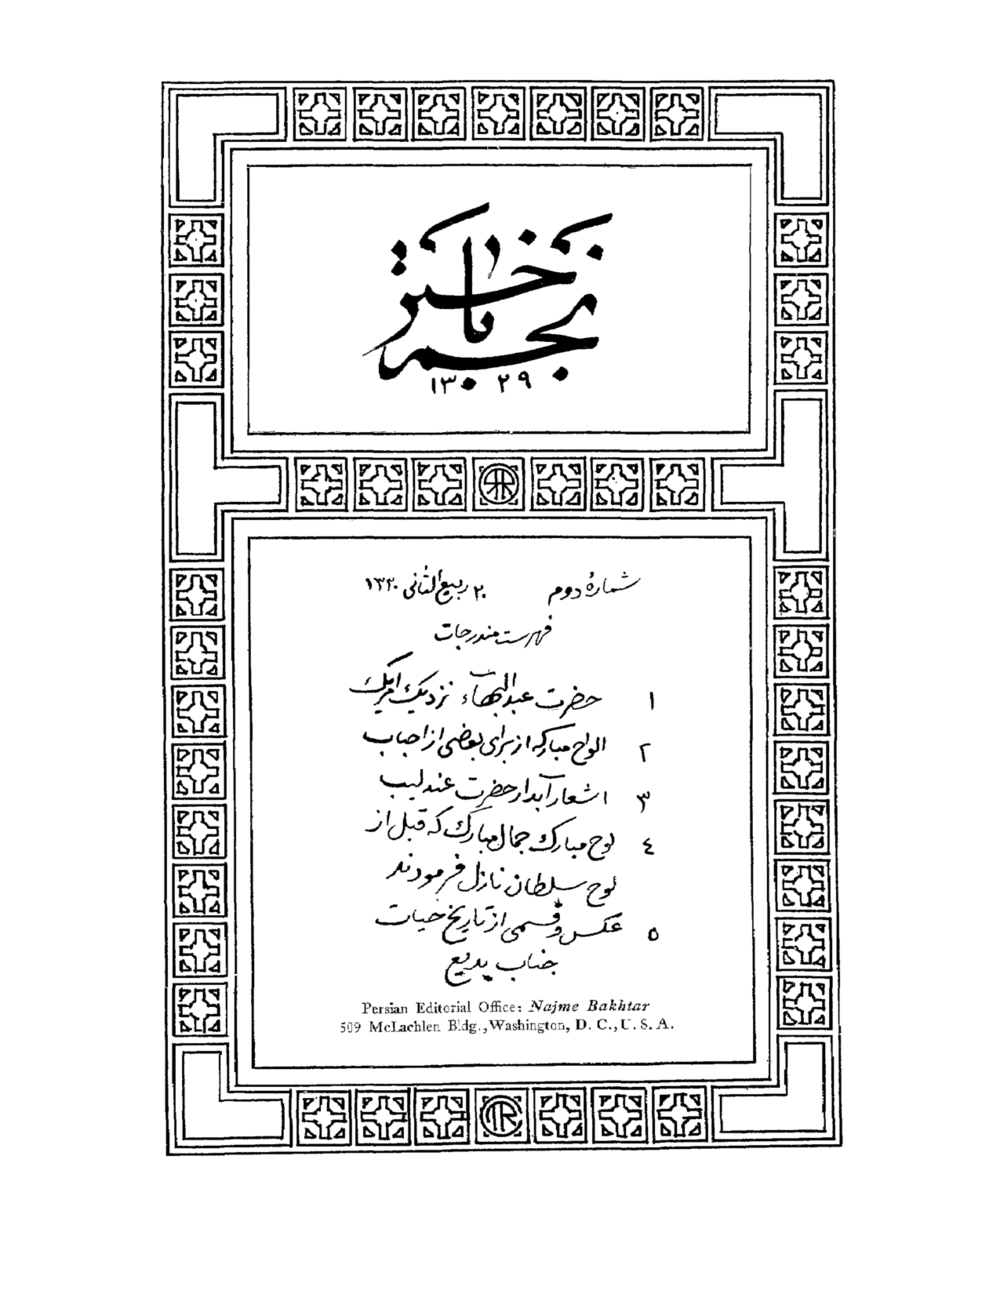 نجم باختر
۱۳۲۹
شمارهٔ دوم ۲۰ ربیع الثانی ۱۳۳۰
فهرست مندرجات
۱ حضرت عبدالبهاء نزدیک امریک
۲ الواح مبارکه از برای بعضی از احباب
۳ اشعار آبدار حضرت عندلیب
٤ لوح مبارک جمال مبارک که قبل از
لوح سلطان نازل فرمودند
۵ عکس و قسمی از تاریخ حیات
جناب بدیع
Persian Editorial Office: Najme Bakhtar
509 McLachlen Bldg., Washington, D. C., U. S. A.